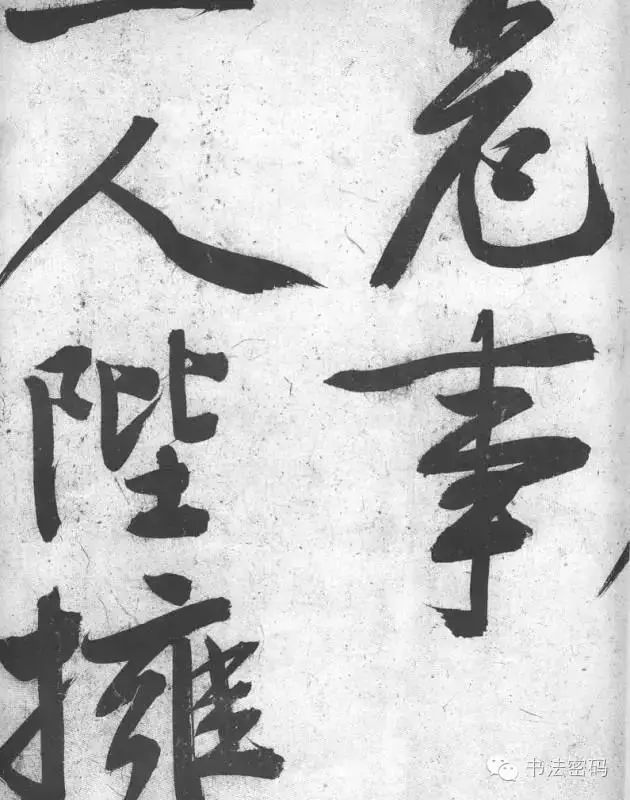 危事
一人陛擁
书法密码